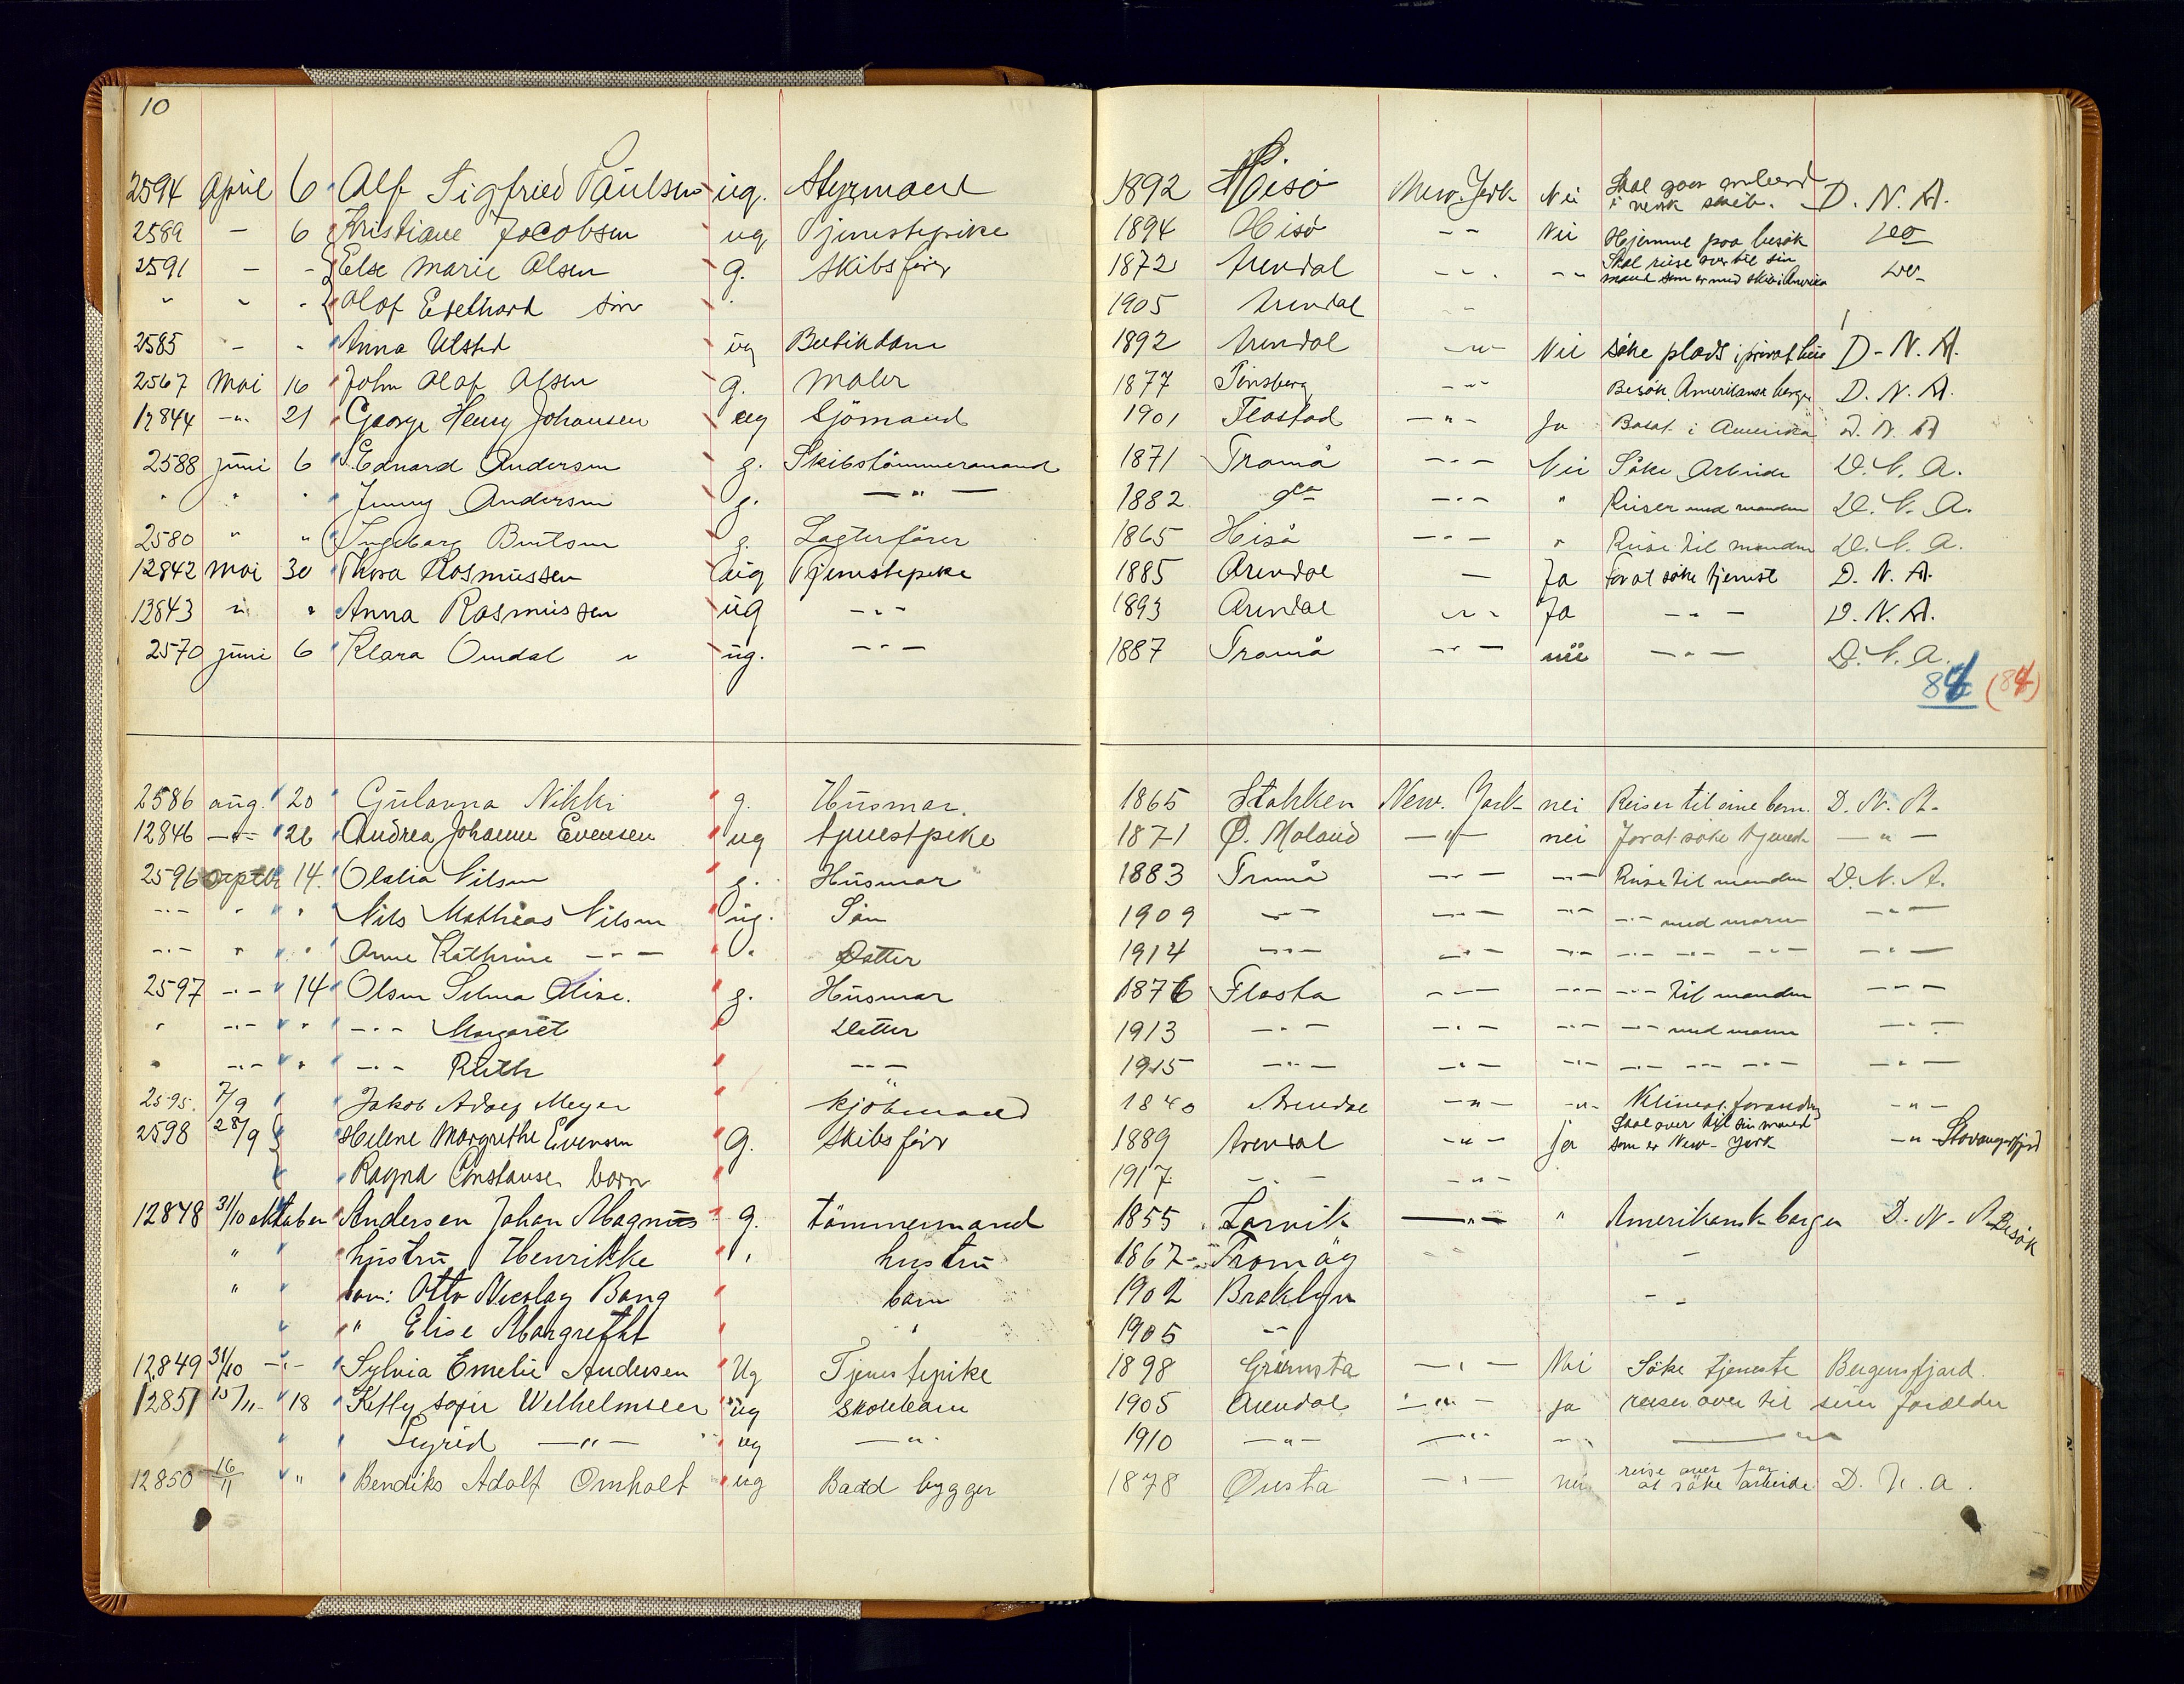 10
2594 April 6 Alf Sigfried Paulsen ug. Styrmand 1892 Hisö New-York Nei Skal gaa ombord i norsk skib. D. N. A.
2589 - 6 Kristiane Jacobsen ug Tjenestepike 1894 Hisö - - Nei Hjemme paa besök do
2591 - - Else Marie Olsen g. Skibsförer 1872 Arendal - - - - - Skal reise over til sin mand som er med skib i Amerika do
" " " Olof Edelhard sön 1905 Arendal - -
2585 - " Anna Ulsted ug Butikdame 1892 Arendal - " - Nei söke plads i privat hus D-N. A.
2567 Mai 16 John Olaf Olsen g. Maler 1877 Tönsberg - " - Besök. Amerikansk borger D. N. A.
12844 - " - 21 George Henry Johansen ug Sjömand 1901 Flostad - " - Ja Bosat i Amerika D. N. A
2588 juni 6 Edvard Andersen g. Skibstömmermand 1871 Tromö - " - Nei Söke Arbeide D. N. A.
" " " Jenny Andersen g. - " - 1882 do - " - " Reiser med manden D. N. A.
2580 " " Ingeborg Berntsen g. Lagterförer 1865 Hisö - " - " Reise til manden D. N. A.
12842 Mai 30 Thora Rasmussen ug Tjenestepike 1885 Arendal - Ja for at söke tjenest D. N. A.
12843 " " Anna Rasmussen ug - " - 1893 Arendal - " - Ja - " - D. N. A.
2570 juni 6 Klara Omdal " ug. - " - 1887 Tromö - " - nei - " - D. N. A.
84 (84)
2586 aug. 20 Gulanna Nikki g. Husmor. 1865 Stokken New. York nei Reiser til sine børn. D. N. A.
12846 - " - 26 Andrea Johanne Evensen ug tjenestpike 1871 Ø. Moland - " - nei For at söke tjeneste - " -
2596 septb 14. Olalia Nilsen g. Husmor 1883 Tromö - " - - " - Reise til manden D. N. A.
- " - " " Nils Mathias Nilsen ug. Sön 1909 - " - - " - - " - - " - med moren - " -
- " - " " Anne Kathrine - " - " Datter 1914 - " - - " - - " - - " - - " - - " - - " -
2597 - " - 14 Olsen Selma Elise. g. Husmor 1876 Flosta - " - - " - - " - til manden - " -
" - " - " - " - Margaret Datter 1913 - " - - " - - " - - " - med moren - " -
" - " - " - " - Ruth - " - 1915 - " - - " - - " - - " - - " - - " - - " -
2595. 7/9 Jakob Adolf Meyer kjöbmand 1840 Arendal - " - - " - Klimat. forandring - " -
2598 28/9 Helene Margrethe Evensen g. Skibsförer 1889 Arendal - " - ja Skal over til sin mand som er New-York - " - Stavangerfjord
Ragna Constanse barn 1917 - " - - " -
12848 31/10 oktober Andersen Johan Magnus g. tömmermand 1855 Larvik - " - " Amerikansk borger D. N. A Besök
" hustru Henrikke " hustru 1867 - " - Tromöy " " -
" barn: Otto Nicolay Bang barn 1902 Broklyn - -
" Elise Margrethe " 1905 - " -
12849 31/10 - " - Sylvia Emelie Andersen Ug Tjenestepike 1898 Grimsta - " - Nei Söke tjeneste Bergensfjord.
12851 15/11- 18 Ketty sofie Wilhelmsen ug Skolebarn 1905 Arendal - " - ja reiser over til sine Forælder
Sigrid - " - ug - " - 1910 - " - - " - - " - - " -
12850 16/11 " Bendiks Adolf Omholt ug Baad bygger 1878 Øiesta - " - nei reise over for at söke arbeide D. N. a.